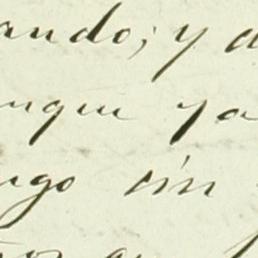 ando; y a
nque ya
ngo sin